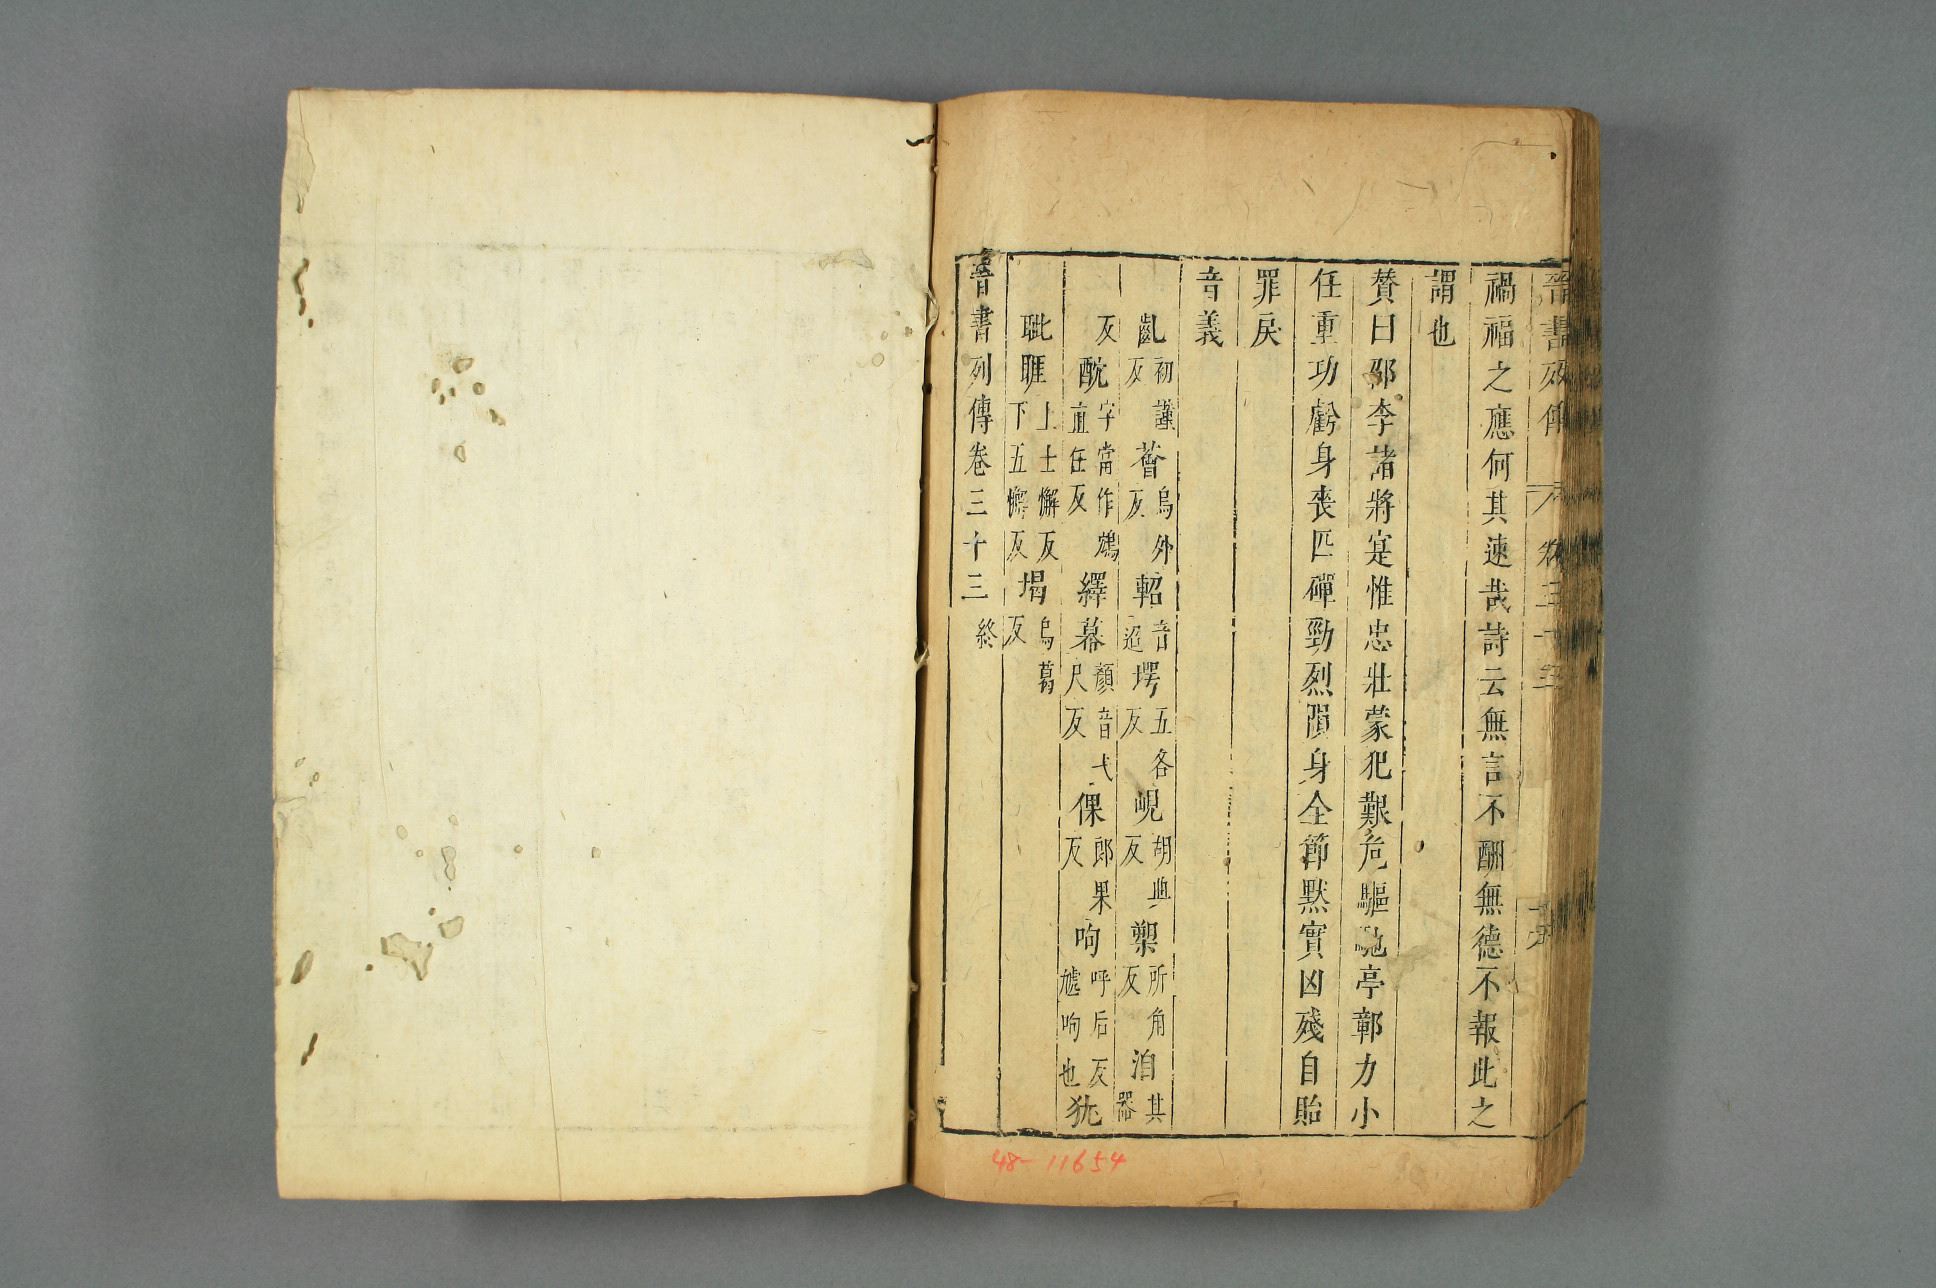 晉書列傳 卷三十三 十六
禍福之應何其速哉詩云無言不酬無德不報此之
謂也
賛曰邵李諸將寔惟忠壯蒙犯艱危驅馳亭鄣力小
任重功虧身喪匹磾勁烈隕身全節默實凶殘自貽
罪戾
音義
齓初謹反薈烏外反軺音迢堮五各反峴胡典反槊所角反洎其器
反酖字當作鴆直任反繹幕顏音弋尺反倮郎果反呴呼后反㖃呴也犹
㱔睚上士懈反下五懈反堨烏葛反
晉書列傳卷三十三終
48-11654